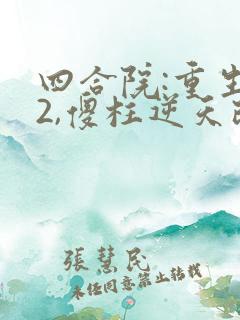 四合院:重生
2,傻柱逆天改
張慧民
未经同意禁止转载